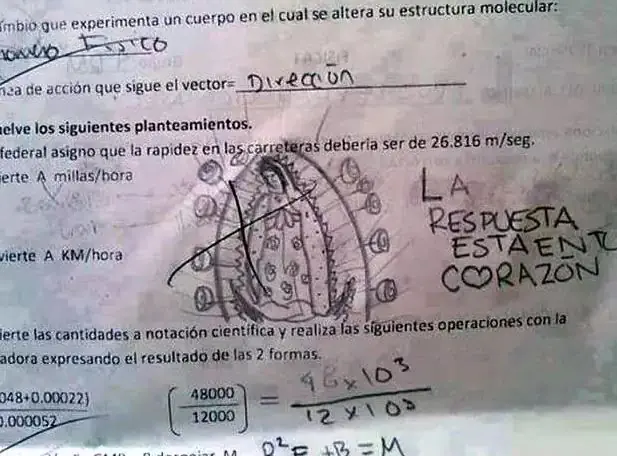 mbio que experimenta un cuerpo en el cual se altera su estructura molecular:
Físico
nea de acción que sigue el vector= Dirección
uelve los siguientes planteamientos.
federal asigno que la rapidez en las carreteras deberia ser de 26.816 m/seg.
ierte A millas/hora
LA
RESPUESTA
ESTA EN TU
CORAZÓN
vierte A KM/hora
ierte las cantidades a notación cientifica y realiza las siguientes operaciones con la
adora expresando el resultado de las 2 formas.
048+0.00022)
0.000052
(48000/12000) = 48x10³/12x10³